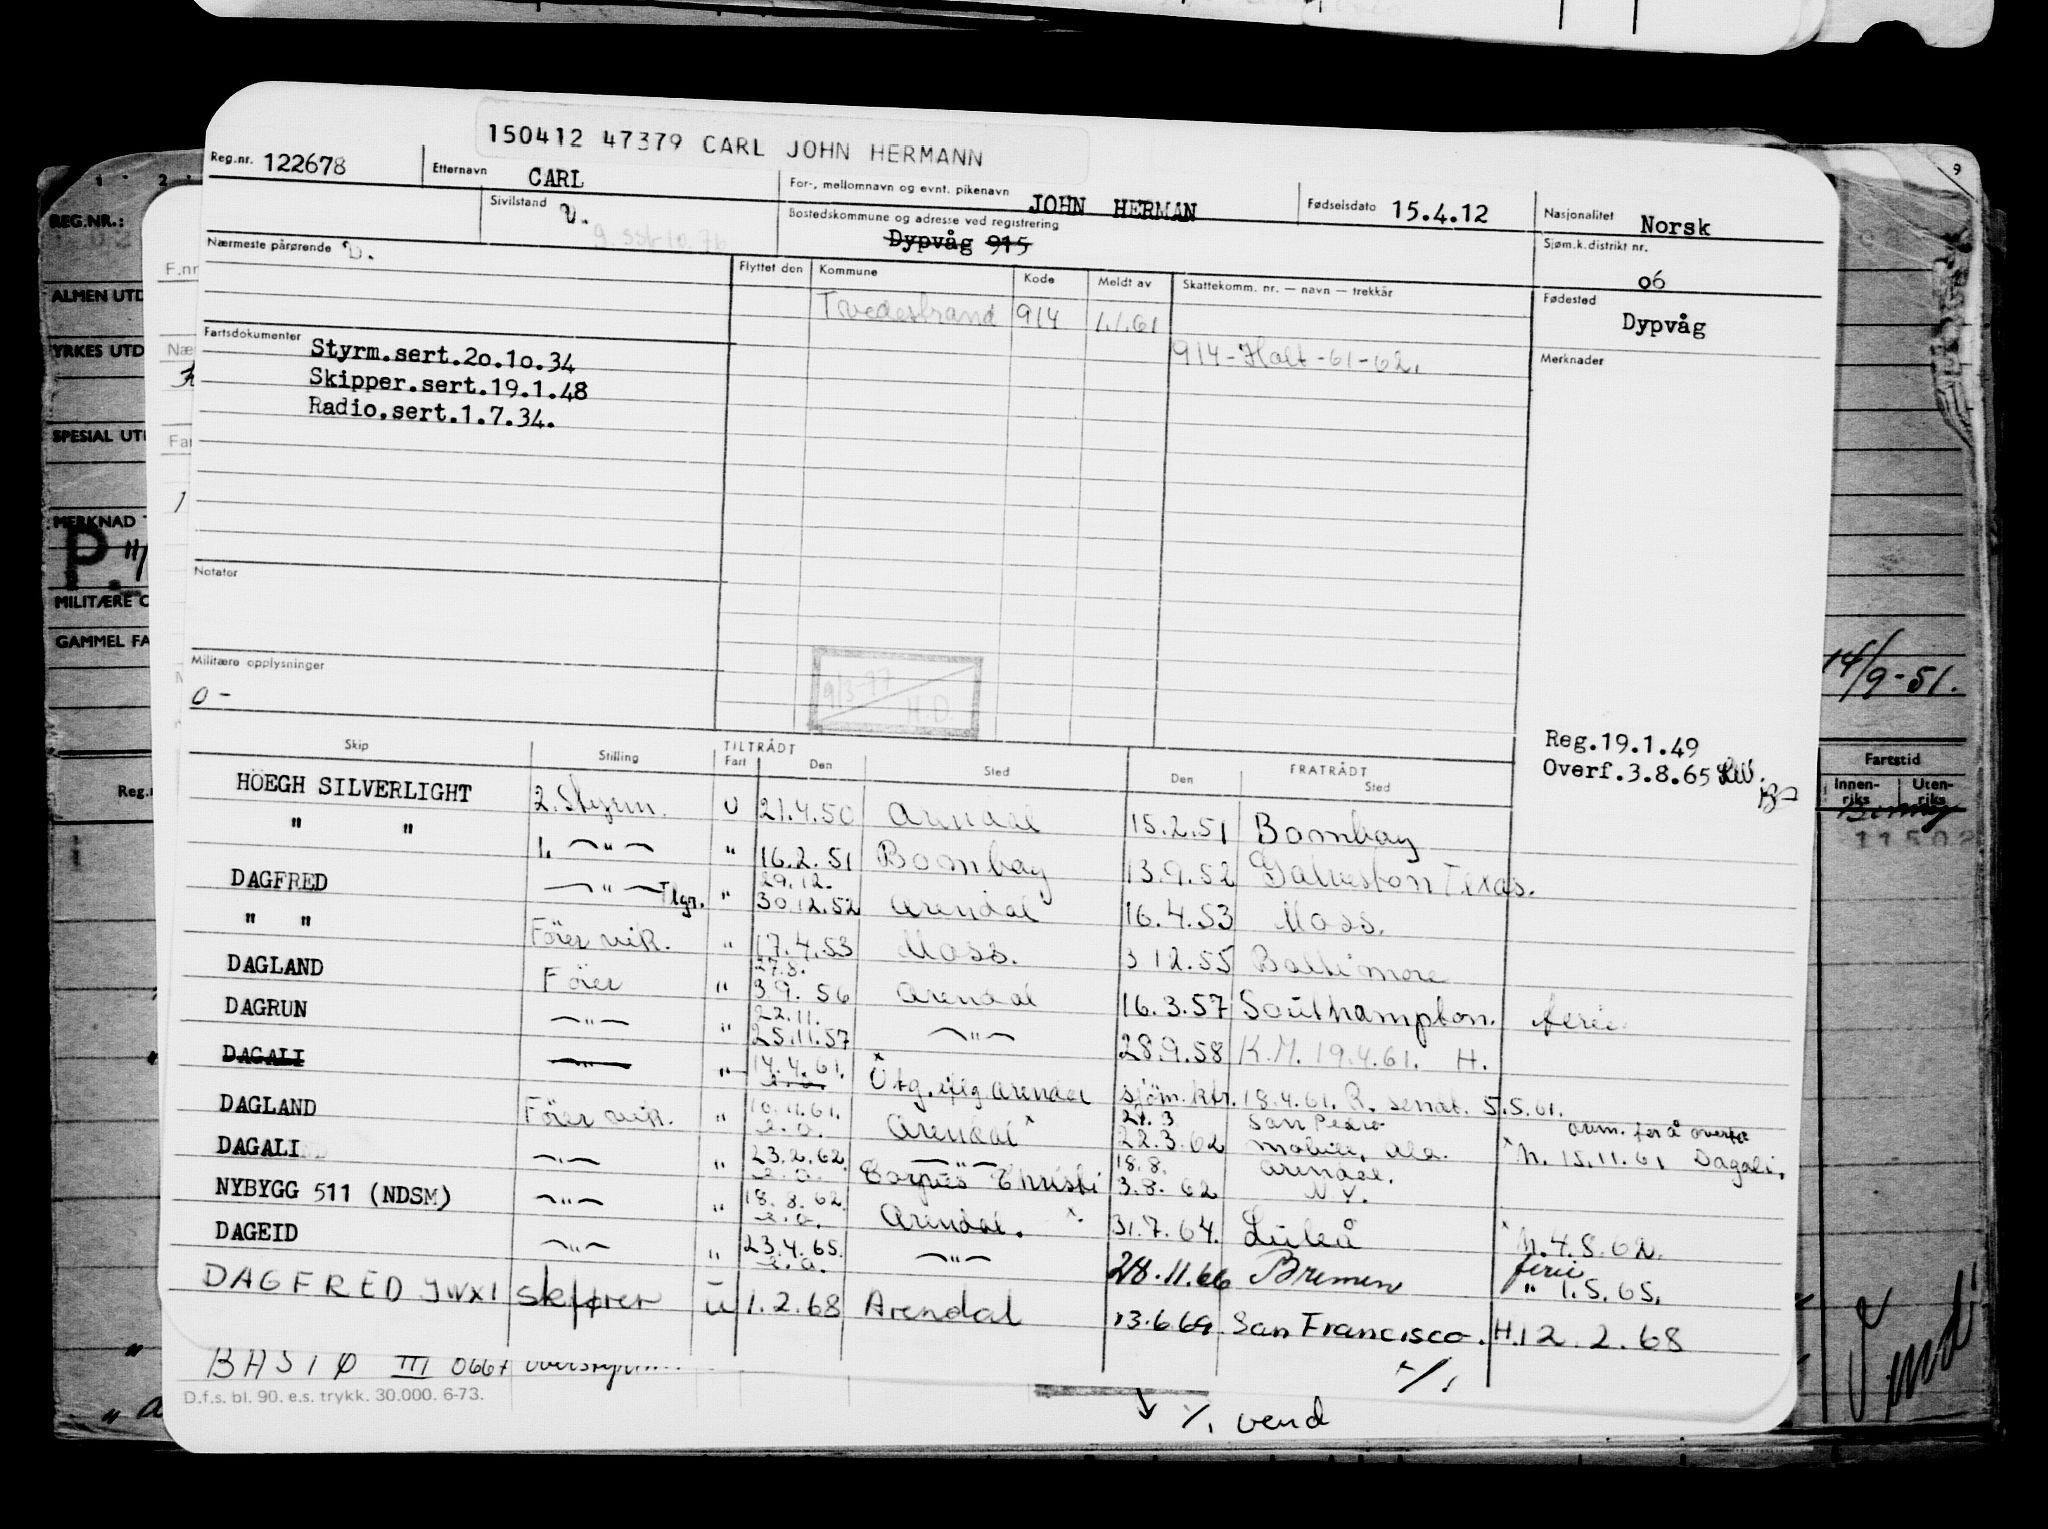 150412 47379 CARL JOHN HERMANN
Reg.nr. 122678 Etternavn CARL For-, mellomnavn og evnt. pikenavn JOHN HERMAN Fødselsdato 15.4.12 Nasjonalitet Norsk
Sivilstand Bostedskommune og adresse ved registrering Dypvåg 915 Sjøm.k.distrikt nr. 06
Nærmeste pårørende Flyttet den Kommune Kode Meldt av Skattekomm. nr. — navn — trekkår Fødested Dypvåg
Tvedestrand 914 1.1.61
914-Holt-61-62.
Merknader
Fartsdokumenter Styrm.sert.20.10.34
Skipper.sert.19.1.48
Radio.sert.1.7.34.
Notater
Militære opplysninger
0-
9/3-97
H.D.
Reg.19.1.49
Overf.3.8.65
Skip Stilling TILTRÅDT Fart Den Sted FRATRÅDT Den Sted
HÖEGH SILVERLIGHT 2. Styrm. U 21.4.50 Arendal 15.2.51 Bombay
" " 1. —"— " 16.2.51 Bombay 13.9.52 Galveston Texas.
DAGFRED —"— Tlgr. " 29.12. 30.12.52 Arendal 16.4.53 Moss.
" " Förer vik. " 17.4.53 Moss. 3 12.55 Baltimore
DAGLAND Förer " 27.8. 3 9. 56 Arendal 16.3.57 Southampton. ferie.
DAGRUN —"— " 22.11. 25.11.57 —"— 28.9.58 K.M. 19.4.61. H.
DAGALI —"— " 14.4.61. Utg. Arendal sjöm.ktr. 18.4.61. R. 5.5.61.
DAGLAND Förer vik. " 10.11.61. Arendal x 22.3.62 San Pedro Mobile, Ala.
DAGALI —"— " 23.2.62. —"— Corpus Christi 18.8. 3.8. 62 Arendal. N.Y. x M. 15.11.61 Dagali.
NYBYGG 511 (NDSM) —"— " 18.8.62. Arendal. x 31.7.64. Luleå x M.4.8.62.
DAGEID —"— " 23.4.65. —"— 28.11.66 Bremen ferie " 1.5.65.
DAGFRED JWXI skipfører u 1.2.68 Arendal 13.6.69 San Francisco. H.12.2.68
BASTØ III
D.f.s. bl. 90. e.s. trykk. 30.000. 6-73.
./. vend
REG.NR.:
F.nr
ALMEN UTD
YRKES UTD
SPESIAL UTD
MERKNAD
P.
MILITÆRE
GAMMEL FA
14/9-51.
Fartstid
Innenriks Utenriks
11502